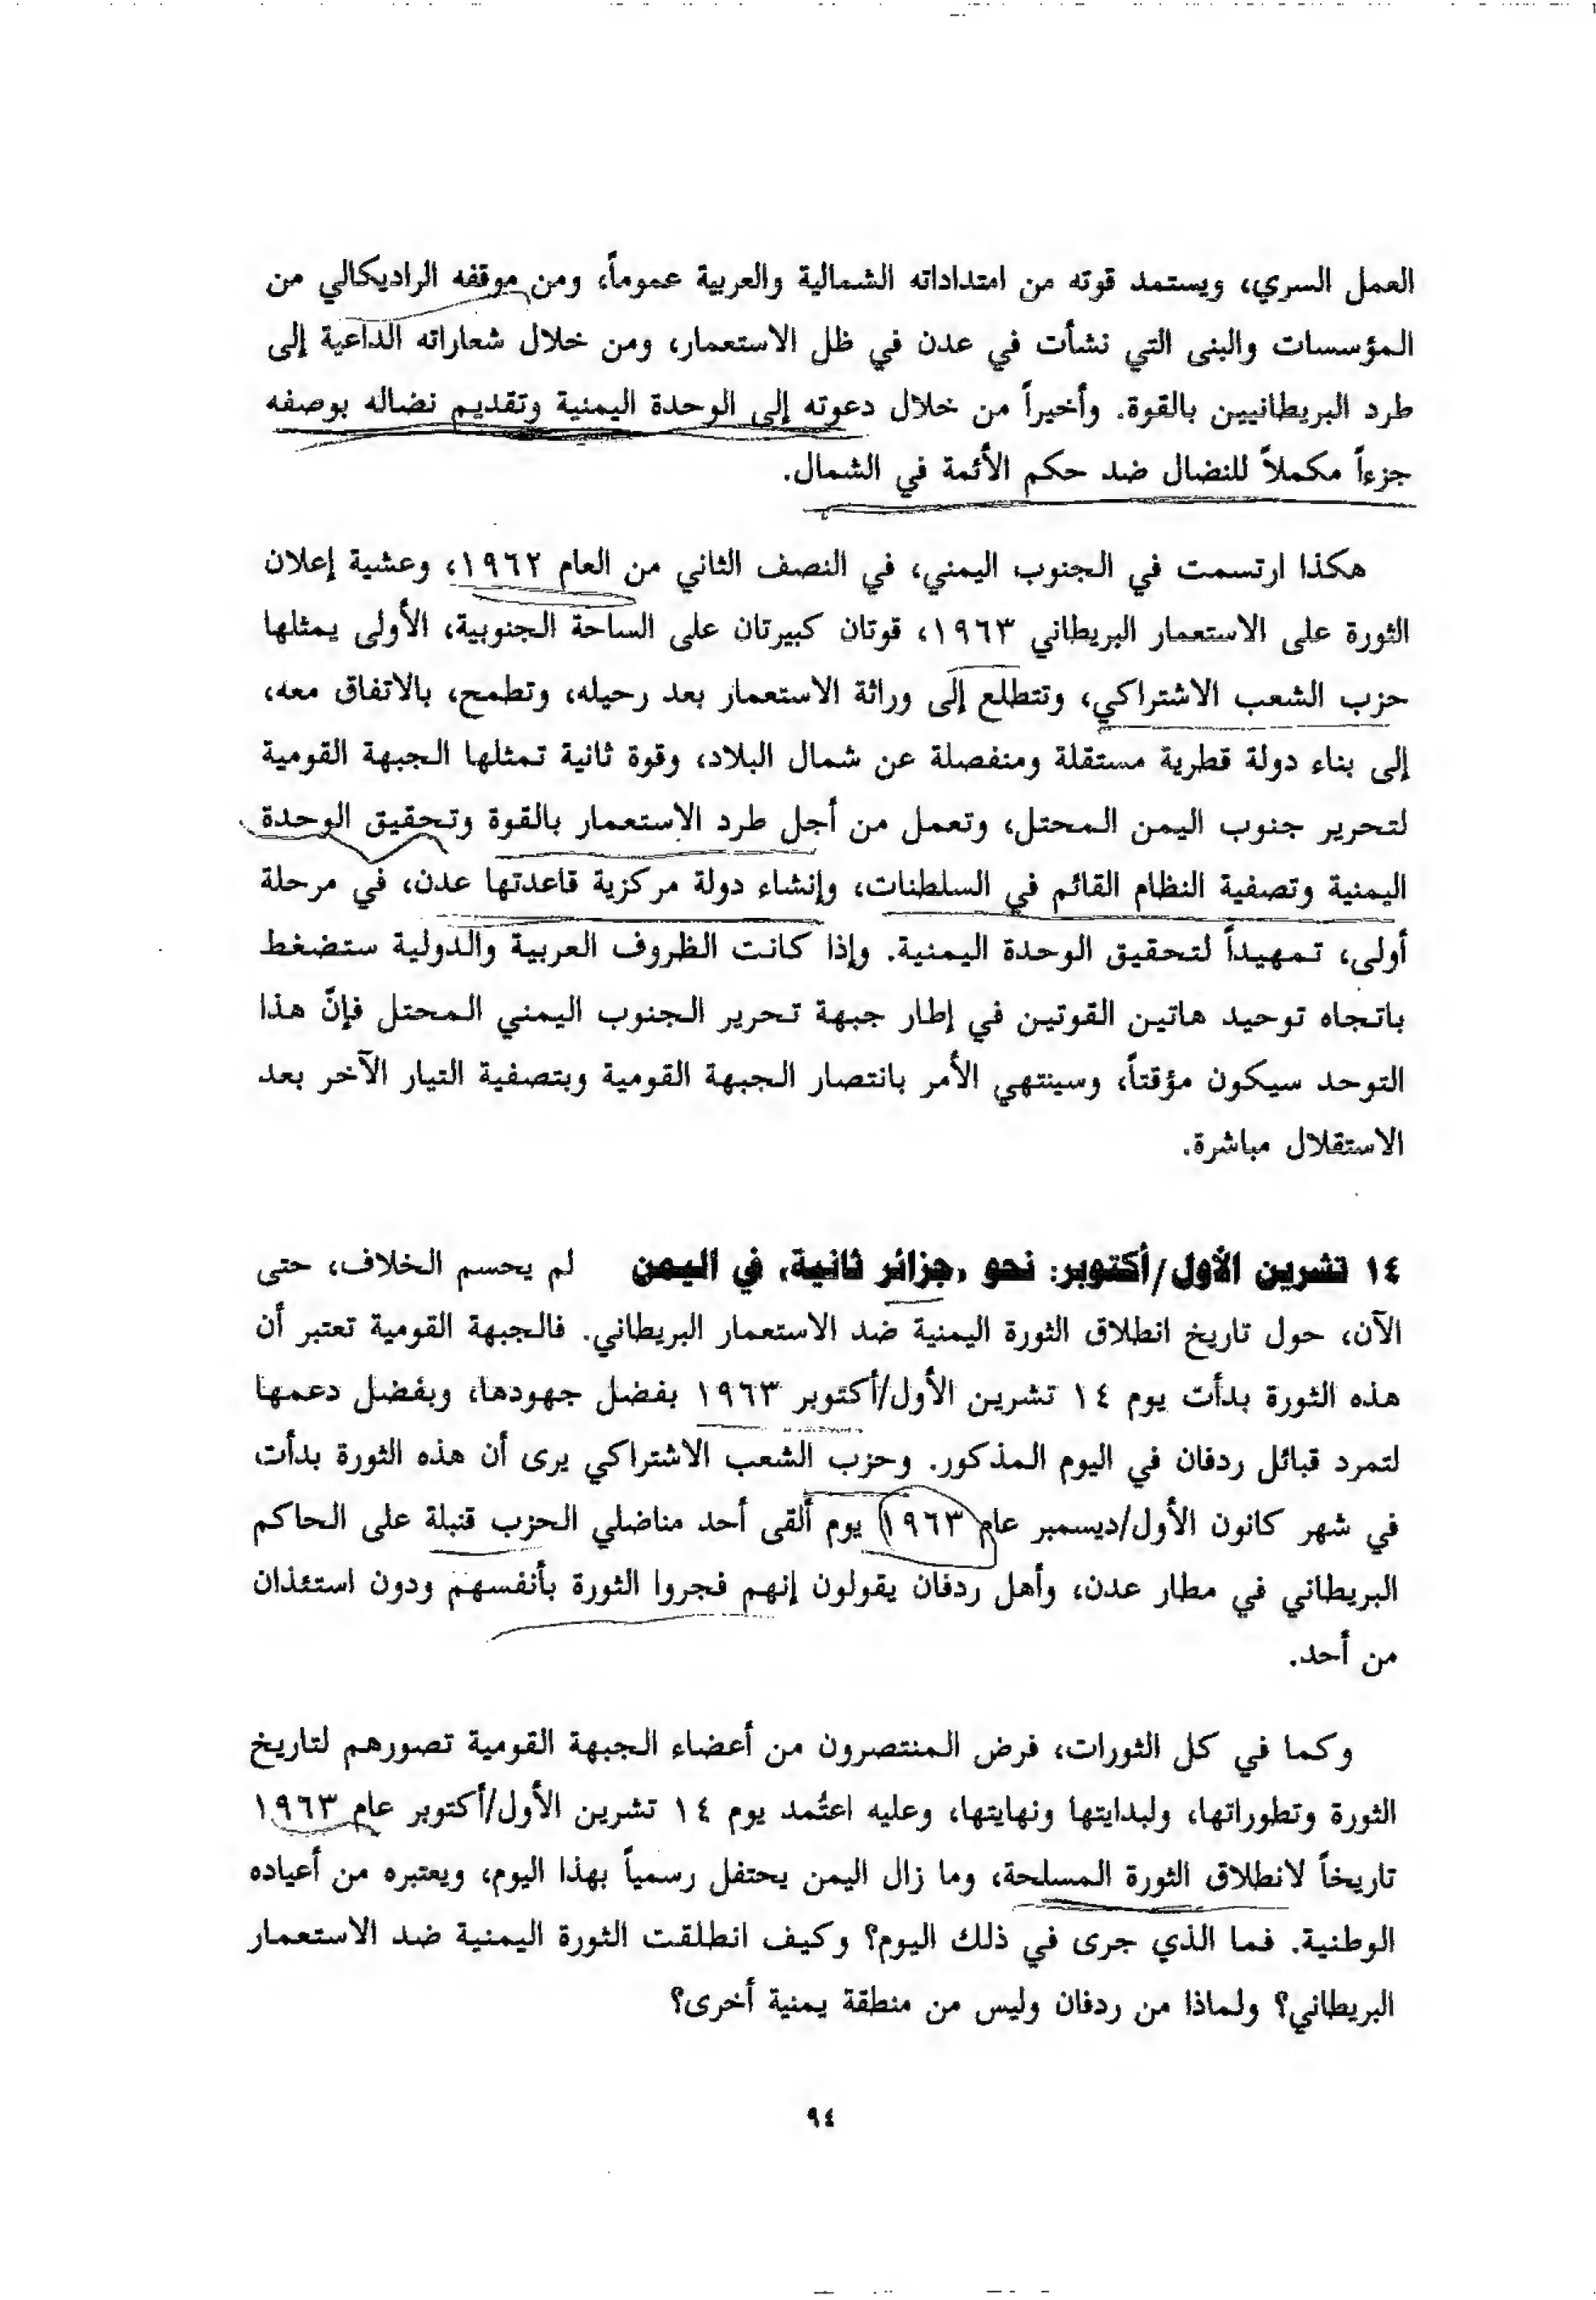 العمل السري، ويستمد قوته من امتداداته الشمالية والعربية عموماً، ومن موقفه الراديكالي من
المؤسسات والبنى التي نشأت في عدن في ظل الاستعمار، ومن خلال شعاراته الداعية إلى
طرد البريطانيين بالقوة. وأخيراً من خلال دعوته إلى الوحدة اليمنية وتقديم نضاله بوصفه
جزءاً مكملاً للنضال ضد حكم الأئمة في الشمال.
هكذا ارتسمت في الجنوب اليمني، في النصف الثاني من العام ١٩٦٢، وعشية إعلان
الثورة على الاستعمار البريطاني ١٩٦٣، قوتان كبيرتان على الساحة الجنوبية، الأولى يمثلها
حزب الشعب الاشتراكي، وتتطلع إلى وراثة الاستعمار بعد رحيله، وتطمح، بالاتفاق معه،
إلى بناء دولة قطرية مستقلة ومنفصلة عن شمال البلاد، وقوة ثانية تمثلها الجبهة القومية
لتحرير جنوب اليمن المحتل، وتعمل من أجل طرد الاستعمار بالقوة وتحقيق الوحدة
اليمنية وتصفية النظام القائم في السلطنات، وإنشاء دولة مركزية قاعدتها عدن، في مرحلة
أولى، تمهيداً لتحقيق الوحدة اليمنية. وإذا كانت الظروف العربية والدولية ستضغط
باتجاه توحيد هاتين القوتين في إطار جبهة تحرير الجنوب اليمني المحتل فإنّ هذا
التوحد سيكون مؤقتاً، وسينتهي الأمر بانتصار الجبهة القومية وبتصفية التيار الآخر بعد
الاستقلال مباشرة.
١٤ تشرين الأول/أكتوبر: نحو «جزائر ثانية» في اليمن لم يحسم الخلاف، حتى
الآن، حول تاريخ انطلاق الثورة اليمنية ضد الاستعمار البريطاني. فالجبهة القومية تعتبر أن
هذه الثورة بدأت يوم ١٤ تشرين الأول/أكتوبر ١٩٦٣ بفضل جهودها، وبفضل دعمها
لتمرد قبائل ردفان في اليوم المذكور. وحزب الشعب الاشتراكي يرى أن هذه الثورة بدأت
في شهر كانون الأول/ديسمبر عام ١٩٦٣ يوم ألقى أحد مناضلي الحزب قنبلة على الحاكم
البريطاني في مطار عدن، وأهل ردفان يقولون إنهم فجروا الثورة بأنفسهم ودون استئذان
من أحد.
وكما في كل الثورات، فرض المنتصرون من أعضاء الجبهة القومية تصورهم لتاريخ
الثورة وتطوراتها، ولبدايتها ونهايتها، وعليه اعتُمد يوم ١٤ تشرين الأول/أكتوبر عام ١٩٦٣
تاريخاً لانطلاق الثورة المسلحة، وما زال اليمن يحتفل رسمياً بهذا اليوم، ويعتبره من أعياده
الوطنية. فما الذي جرى في ذلك اليوم؟ وكيف انطلقت الثورة اليمنية ضد الاستعمار
البريطاني؟ ولماذا من ردفان وليس من منطقة يمنية أخرى؟
٩٤